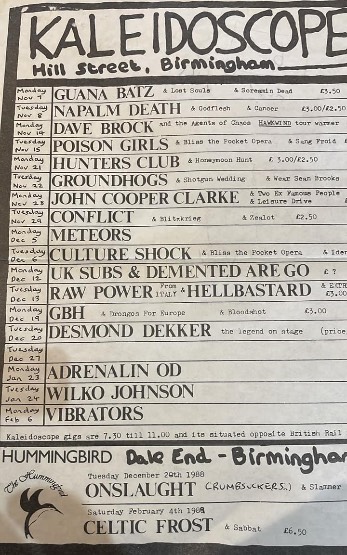 KALEIDOSCOPE
Hill Street, Birmingham
Monday Nov 7 GUANA BATZ & Lost Souls & Screamin Dead £3.50
Tuesday Nov 8 NAPALM DEATH & Godflesh & Cancer £3.00/£2.50
Monday Nov 14 DAVE BROCK and the Agents of Chaos HAWKWIND tour warmer
Tuesday Nov 15 POISON GIRLS & Bliss the Pocket Opera & Sang Froid £
Monday Nov 21 HUNTERS CLUB & Honeymoon Hunt £ 3.00/£2.50
Tuesday Nov 22 GROUNDHOGS & Shotgun Wedding & Wear Sean Brooks
Monday Nov 28 JOHN COOPER CLARKE & Two Ex Famous People & Leisure Drive &
Tuesday Nov 29 CONFLICT & Blitzkrieg & Zealot £2.50
Monday Dec 5 METEORS
Tuesday Dec 6 CULTURE SHOCK & Bliss the Pocket Opera &
Monday Dec 12 UK SUBS & DEMENTED ARE GO £ ?
Tuesday Dec 13 RAW POWER From ITALY & HELLBASTARD & £3.00
Monday Dec 19 GBH & Drongos For Europe & Bloodshot £3.00
Tuesday Dec 20 DESMOND DEKKER the legend on stage (price
Tuesday Dec 27
Monday Jan 23 ADRENALIN OD
Tuesday Jan 24 WILKO JOHNSON
Monday Feb 6 VIBRATORS
Kaleidoscope gigs are 7.30 till 11.00 and its situated opposite British Rail
HUMMINGBIRD Dale End - Birmingham
The Hummingbird
Tuesday December 20th 1988
ONSLAUGHT (CRUMBSUCKERS) & Slammer
Saturday February 4th 1989
CELTIC FROST & Sabbat £6.50